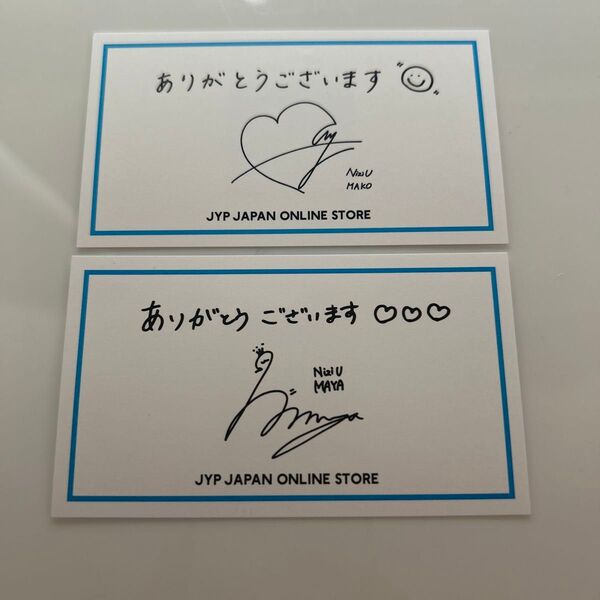 ありがとうございます
NiziU
MAKO
JYP JAPAN ONLINE STORE
ありがとうございます ♡♡♡
NiziU
MAYA
JYP JAPAN ONLINE STORE